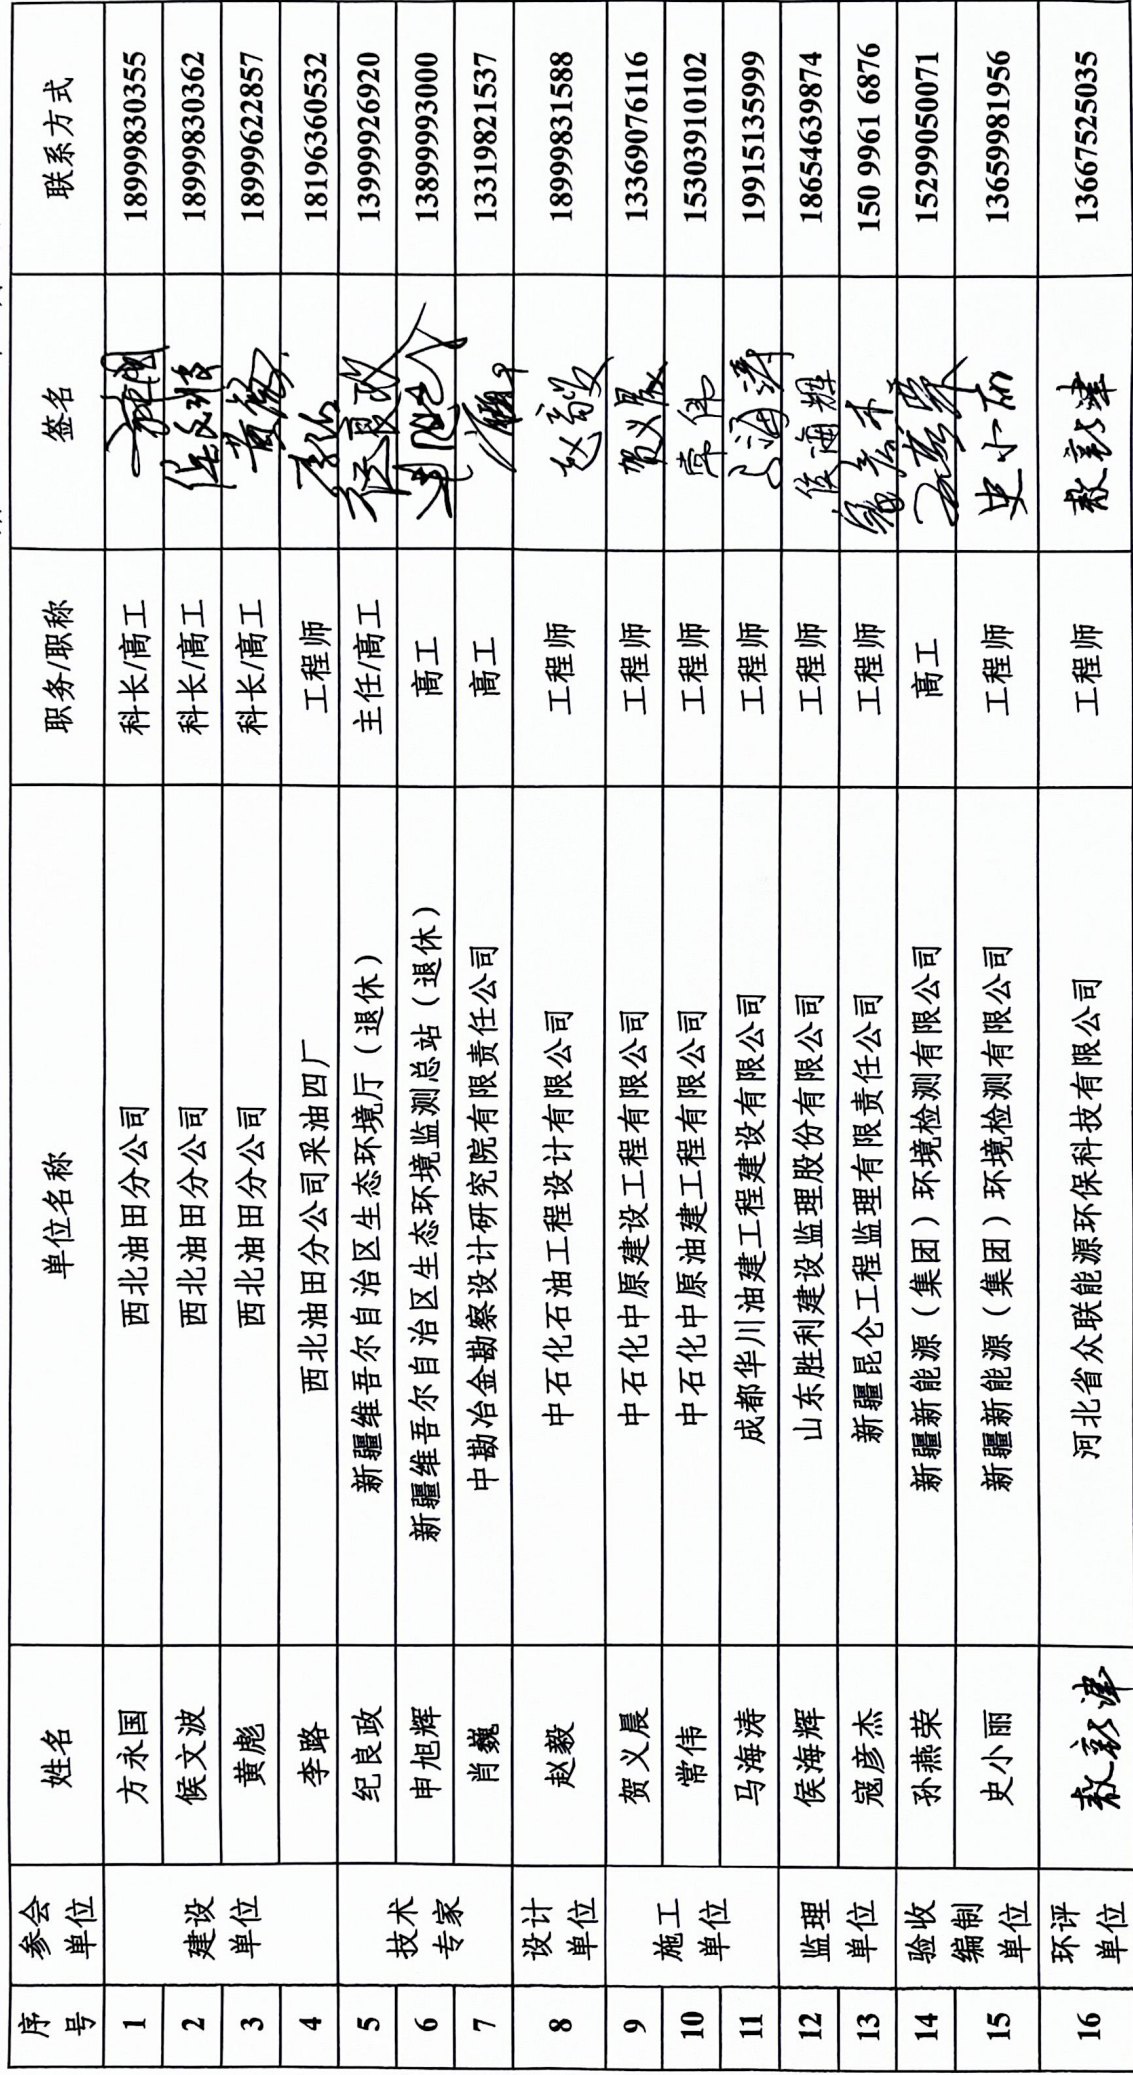 序号 参会单位 姓名 单位名称 职务/职称 签名 联系方式
1 建设单位 方永国 西北油田分公司 科长/高工 18999830355
2 候文波 西北油田分公司 科长/高工 18999830362
3 黄彪 西北油田分公司 科长/高工 黄彪 18999622857
4 李路 西北油田分公司采油四厂 工程师 18196360532
5 技术专家 纪良政 新疆维吾尔自治区生态环境厅（退休） 主任/高工 13999926920
6 申旭辉 新疆维吾尔自治区生态环境监测总站（退休） 高工 13899993000
7 肖巍 中勘冶金勘察设计研究院有限责任公司 高工 13319821537
8 设计单位 赵毅 中石化石油工程设计有限公司 工程师 赵毅 18999831588
9 施工单位 贺义晨 中石化中原建设工程有限公司 工程师 贺义晨 13369076116
10 常伟 中石化中原油建工程有限公司 工程师 常伟 15303910102
11 马海涛 成都华川油建工程建设有限公司 工程师 马海涛 19915135999
12 监理单位 侯海辉 山东胜利建设监理股份有限公司 工程师 侯海辉 18654639874
13 寇彦杰 新疆昆仑工程监理有限责任公司 工程师 150 9961 6876
14 验收编制单位 孙燕荣 新疆新能源（集团）环境检测有限公司 高工 孙燕荣 15299050071
15 史小丽 新疆新能源（集团）环境检测有限公司 工程师 史小丽 13659981956
16 环评单位 河北省众联能源环保科技有限公司 工程师 13667525035